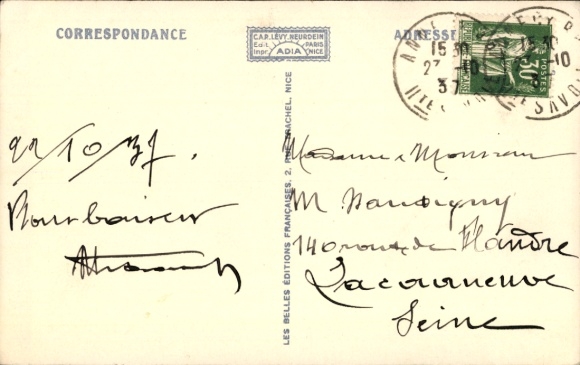 CORRESPONDANCE
CAP. LÉVY, NEURDEIN
Edit. PARIS
Impr. ADIA NICE
ADRESSE
15 30
23 -10
37
Hte
30c
POSTES
SAVOIE
22/10/37.
Bons baisers
LES BELLES ÉDITIONS FRANÇAISES, 2, RUE RACHEL, NICE
Madame Monsieur
M
140 route de Flandre
Lacourneuve
Seine